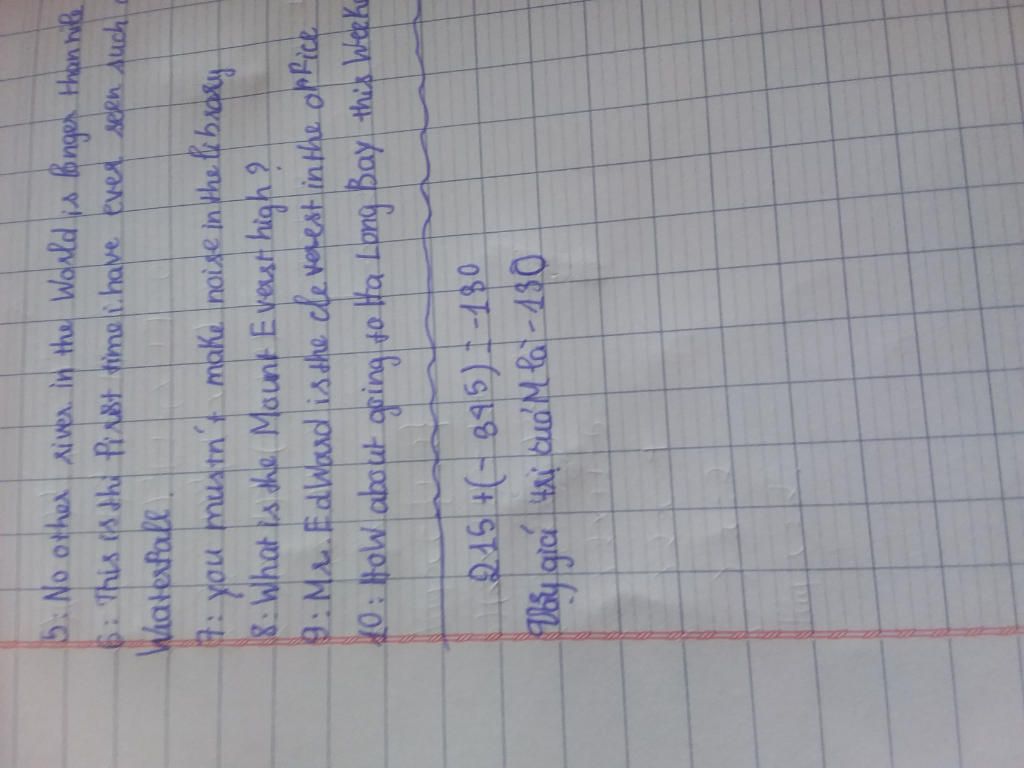 5: No other river in the World is longer than nile
6: This is the first time i have ever seen such
Waterfall.
7: you mustn't make noise in the library
8: What is the Mount Everest high?
9: Mr. Edward is the cleverest in the office
10: HoW about going to Ha Long Bay this Week
215 + (- 345) = -130
Vậy giá trị của M là -130